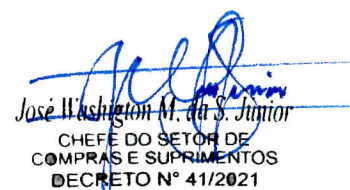 José Washigton M. da S. Junior
CHEFE DO SETOR DE
COMPRAS E SUPRIMENTOS
DECRETO Nº 41/2021